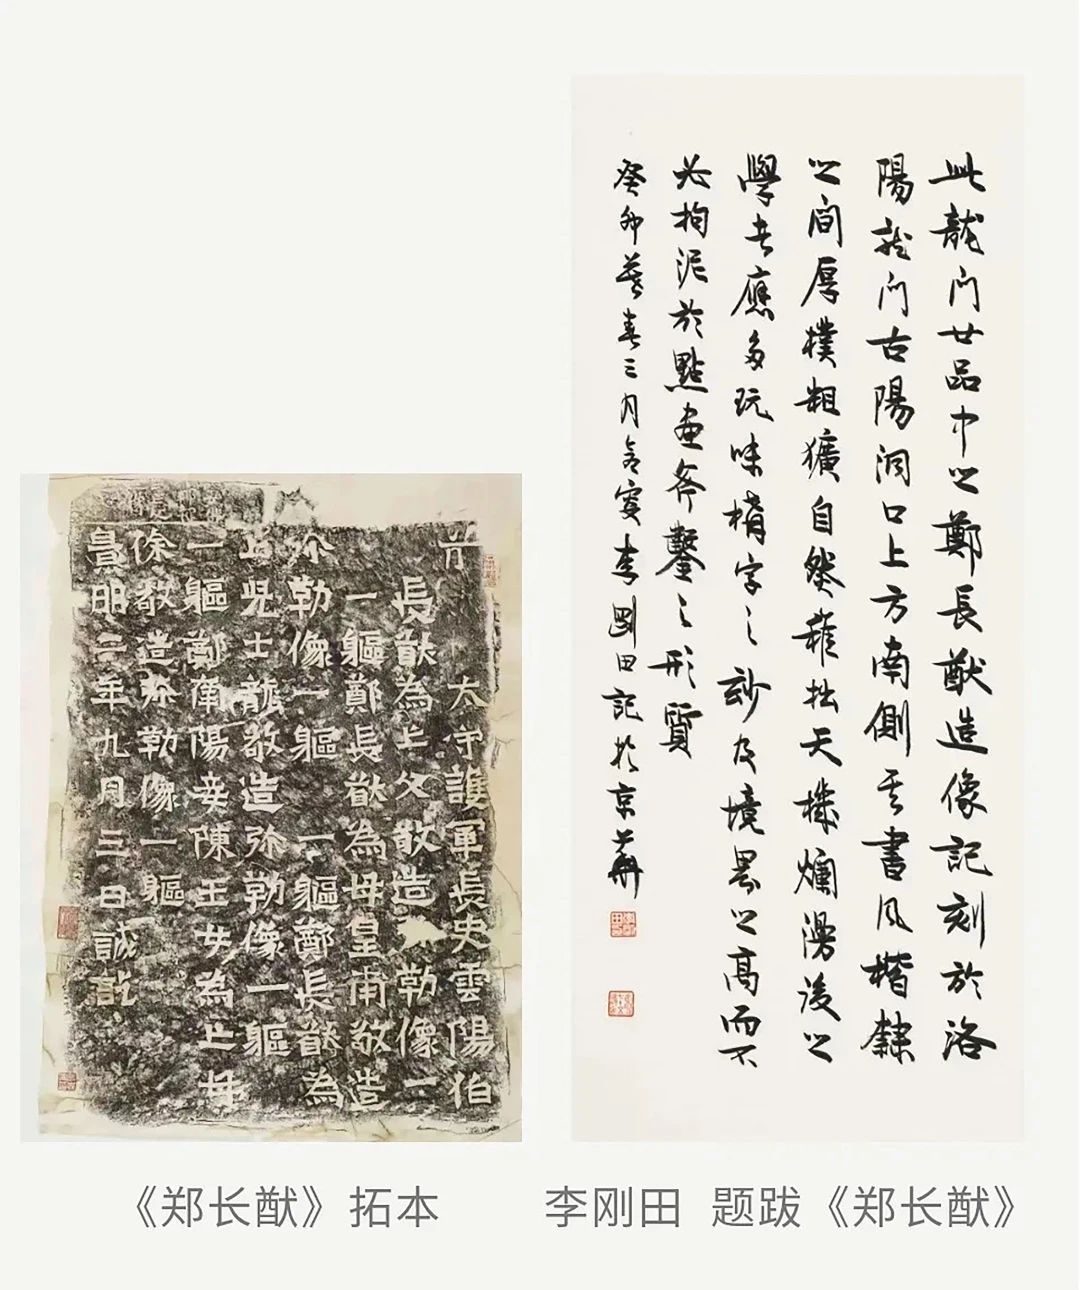 前太守護軍長史雲陽伯
長猷為亡父敬造勒像一
一軀鄭長猷為母皇甫敬造
弥勒像一軀一軀鄭長猷為
亡兒士龍敬造弥勒像一軀
一軀鄭南陽妾陳玉女為亡母
徐敬造弥勒像一軀
景明二年九月三日誠訖
此龍門廿品中之鄭長猷造像記刻於洛
陽龍門古陽洞口上方南側其書風楷隸
之間厚樸粗獷自然稚拙天機爛漫後之
學者應多玩味構字之妙及境界之高而不
必拘泥於點畫斧鑿之形質
癸卯暮春三月李剛田記於京華
《郑长猷》拓本
李刚田 题跋《郑长猷》